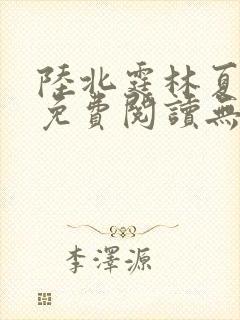 陸北霆林夏
免費閱讀無
李澤源